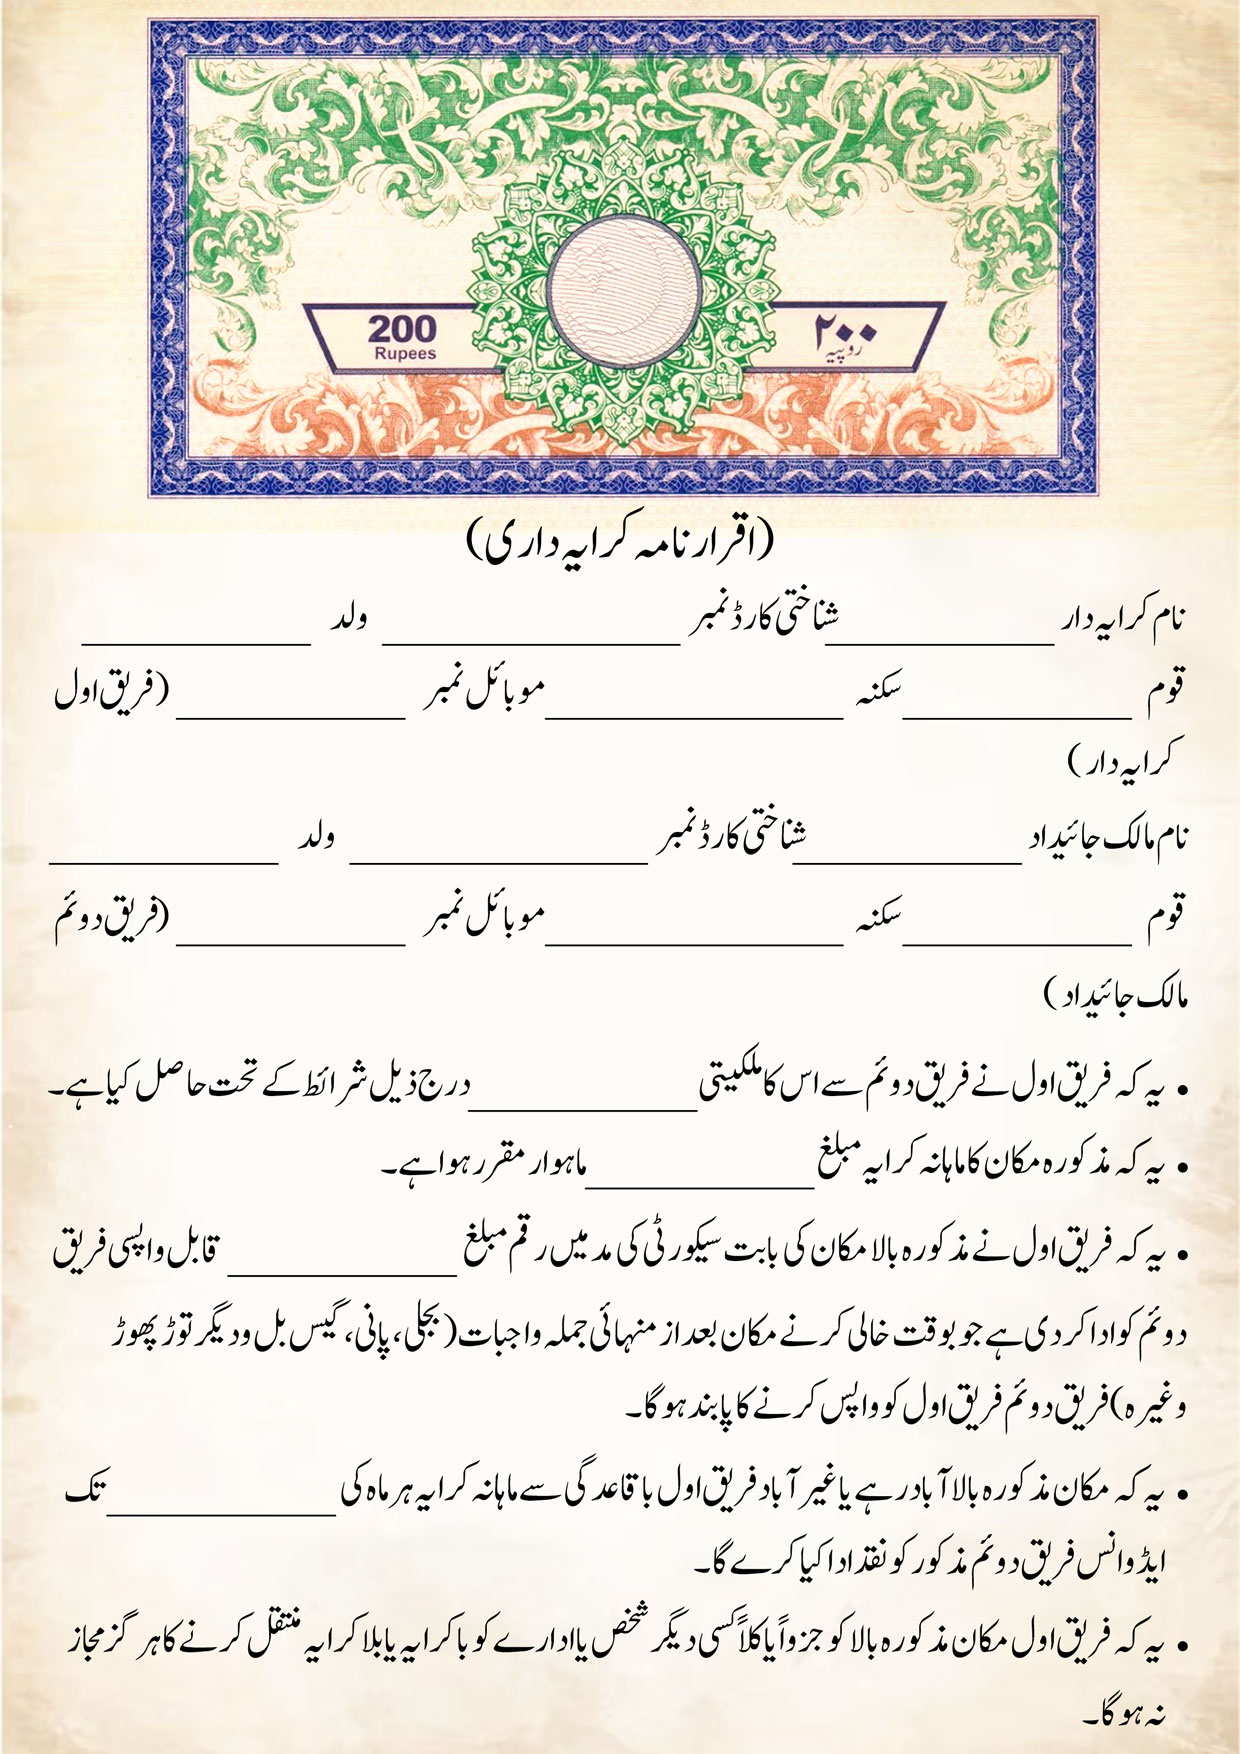 200
Rupees
۲۰۰
روپیہ
(اقرار نامہ کرایہ داری)
نام کرایہ دار ______________ شناختی کارڈ نمبر ______________ ولد ______________
قوم ______________ سکنہ ______________ موبائل نمبر ______________ (فریق اول
کرایہ دار)
نام مالک جائیداد ______________ شناختی کارڈ نمبر ______________ ولد ______________
قوم ______________ سکنہ ______________ موبائل نمبر ______________ (فریق دوئم
مالک جائیداد)
• یہ کہ فریق اول نے فریق دوئم سے اس کا ملکیتی ______________ درج ذیل شرائط کے تحت حاصل کیا ہے۔
• یہ کہ مذکورہ مکان کا ماہانہ کرایہ مبلغ ______________ ماہوار مقرر ہوا ہے۔
• یہ کہ فریق اول نے مذکورہ بالا مکان کی بابت سیکورٹی کی مد میں رقم مبلغ ______________ قابل واپسی فریق
دوئم کو ادا کر دی ہے جو بوقت خالی کرنے مکان بعد از منہائی جملہ واجبات (بجلی، پانی، گیس بل و دیگر توڑ پھوڑ
وغیرہ) فریق دوئم فریق اول کو واپس کرنے کا پابند ہو گا۔
• یہ کہ مکان مذکورہ بالا آباد رہے یا غیر آباد فریق اول باقاعدگی سے ماہانہ کرایہ ہر ماہ کی ______________ تک
ایڈوانس فریق دوئم مذکور کو نقد ادا کیا کرے گا۔
• یہ کہ فریق اول مکان مذکورہ بالا کو جزواً یا کلاً کسی دیگر شخص یا ادارے کو با کرایہ یا بلا کرایہ منتقل کرنے کا ہر گز مجاز
نہ ہو گا۔